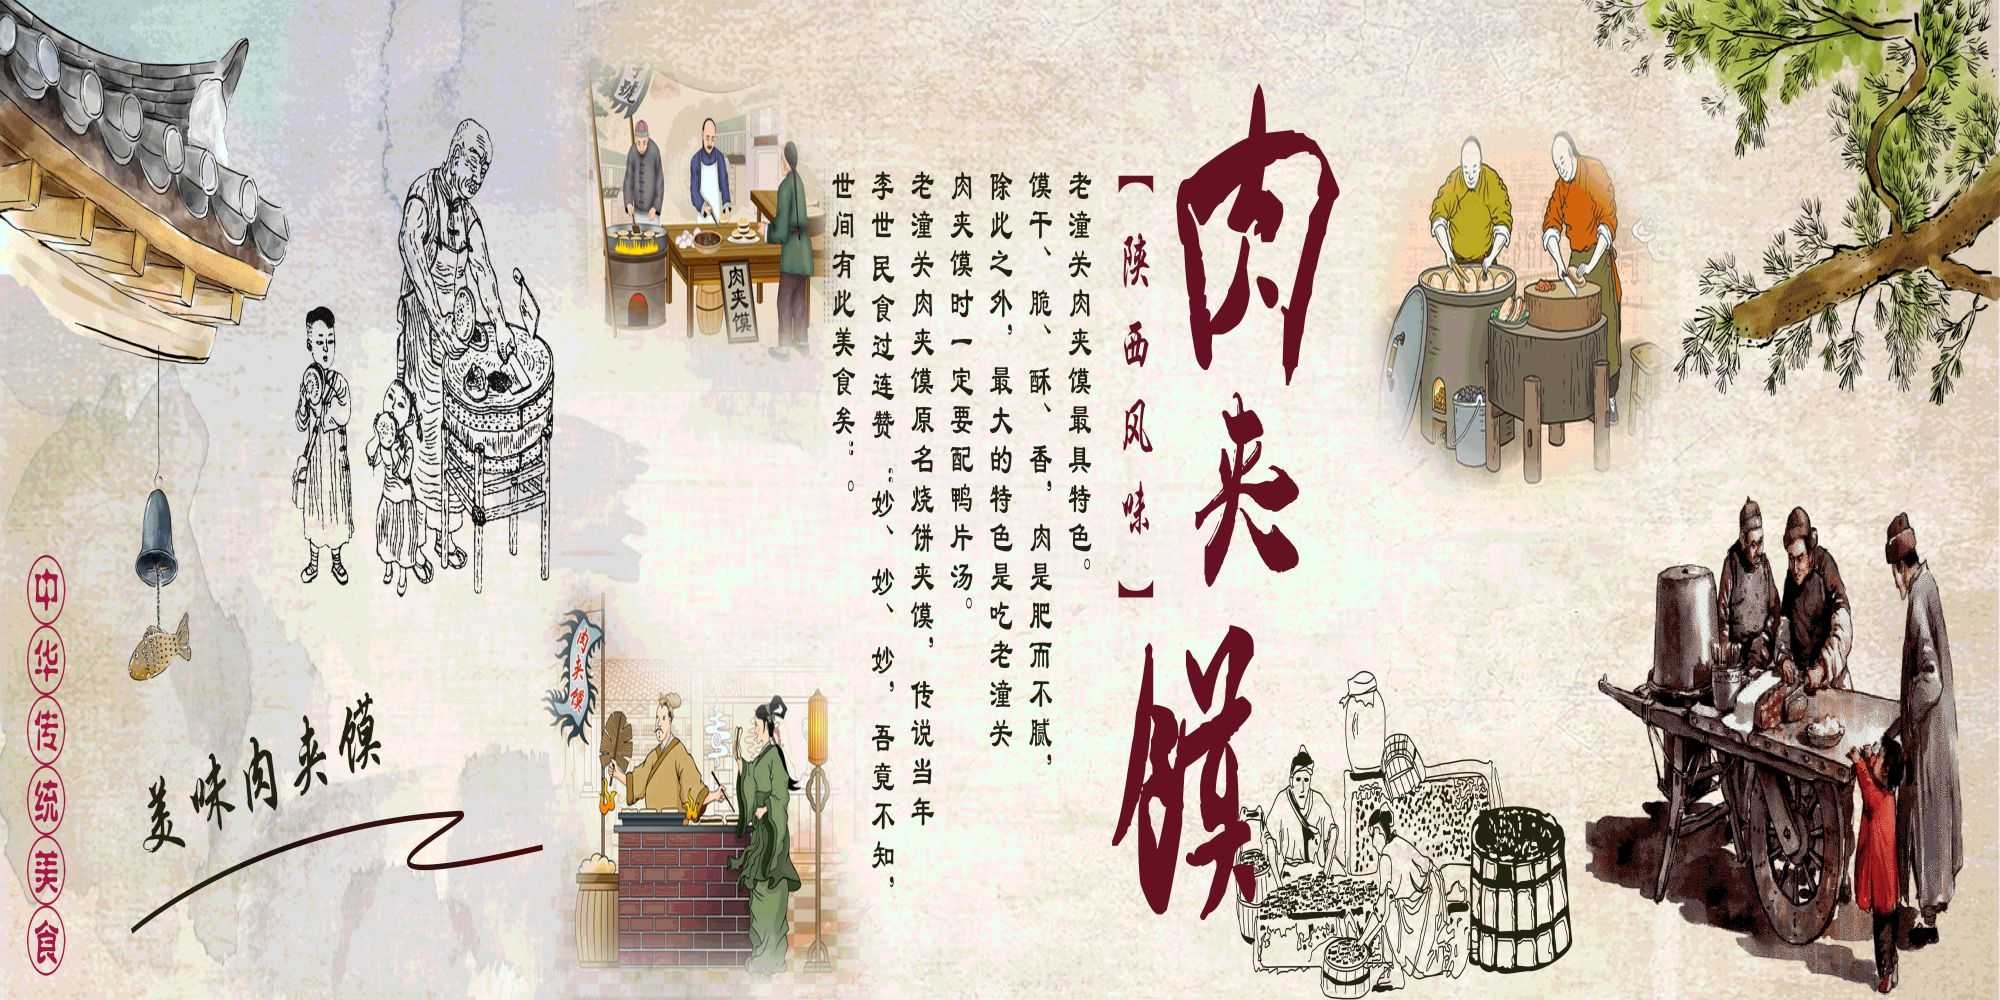 肉夹馍
【陕西风味】
老潼关肉夹馍最具特色。
馍干、脆、酥、香，肉是肥而不腻，
除此之外，最大的特色是吃老潼关
肉夹馍时一定要配鸭片汤。
老潼关肉夹馍原名烧饼夹馍，传说当年
李世民食过连赞“妙、妙、妙，吾竟不知，
世间有此美食矣”。
肉夹馍
肉夹馍
美味肉夹馍
中华传统美食